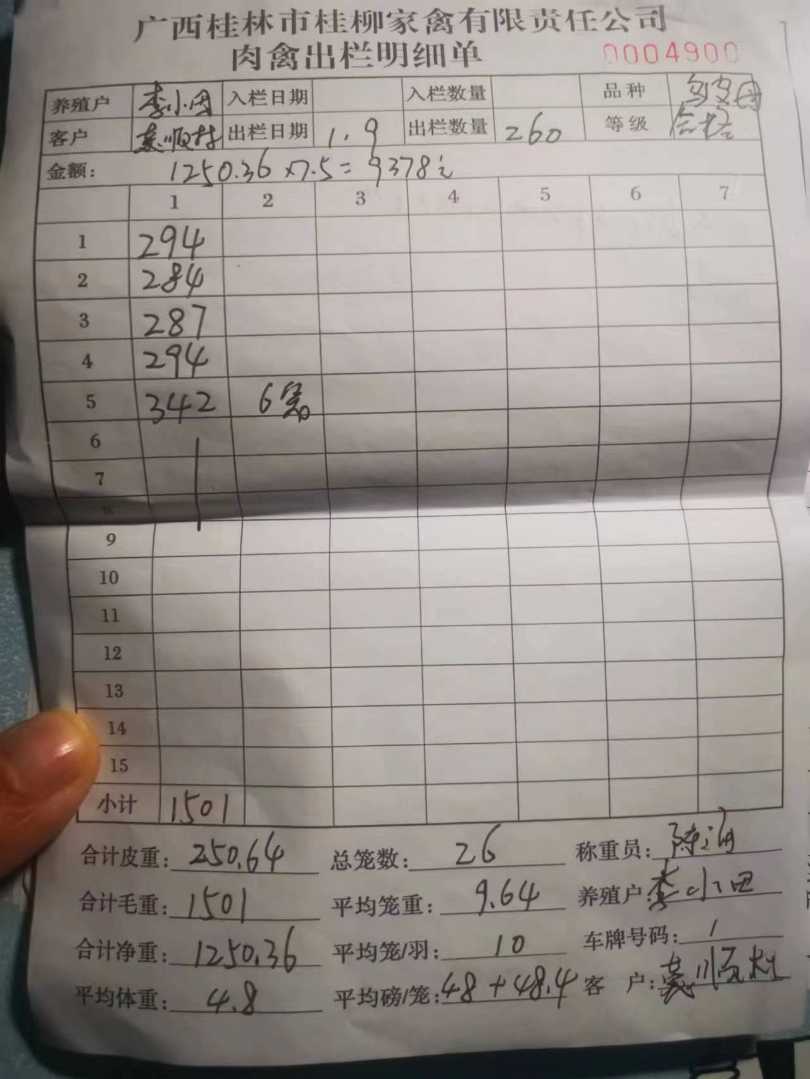 广西桂林市桂柳家禽有限责任公司
肉禽出栏明细单 0004900
养殖户 李小田 入栏日期 入栏数量 品种
客户 出栏日期 1.9 出栏数量 260 等级 合格
金额: 1250.36×7.5=9378
1 2 3 4 5 6 7
1 294
2 284
3 287
4 294
5 342 6笼
6
7
8
9
10
11
12
13
14
15
小计 1501
合计皮重: 250.64 总笼数: 26 称重员:
合计毛重: 1501 平均笼重: 9.64 养殖户: 李小田
合计净重: 1250.36 平均笼/羽: 10 车牌号码: 1
平均体重: 4.8 平均磅/笼: 48+48.4 客 户: